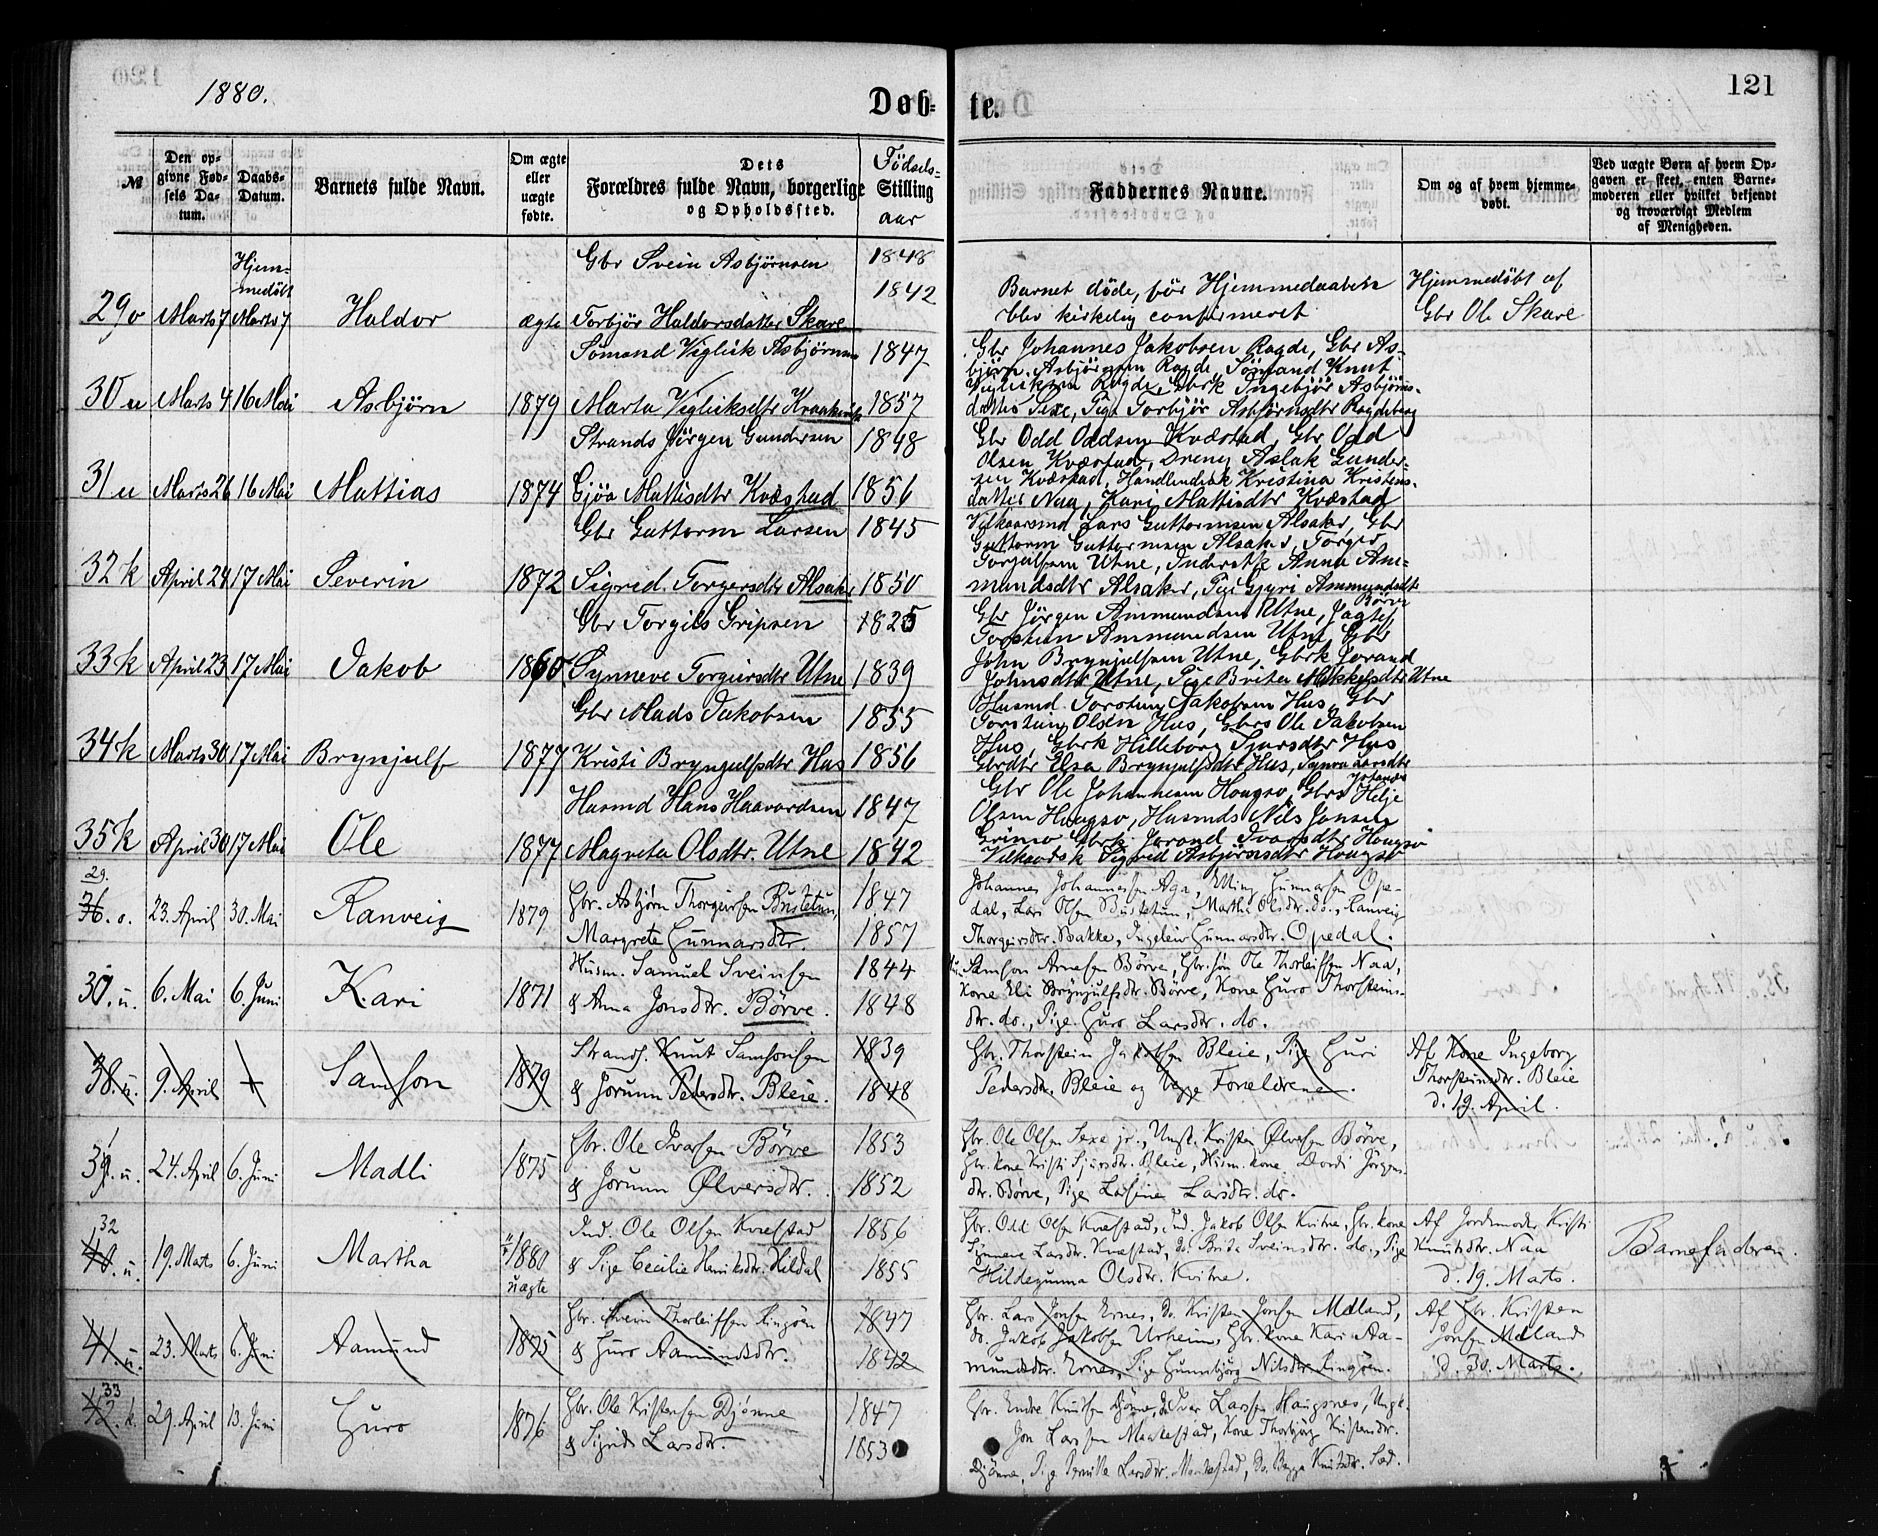 1880.
Døb-
te.
121
№
Den op-
givne Fød-
sels Da-
tum.
Daabs-
Datum.
Barnets fulde Navn.
Om ægte
eller
uægte
fødte.
Dets
Forældres fulde Navn, borgerlige Stilling
og Opholdssted.
Fødsels-
aar
Faddernes Navne.
Om og af hvem hjemme-
døbt.
Ved uægte Børn af hvem Op-
gaven er skeet, enten Barne-
moderen eller hvilket bekjendt
og troværdigt Medlem
af Menigheden.
Gbr Svein Asbjørnsen 1848
Hjem-
medøbt
1842
29 o Marts 7 Marts 7 Haldor ægte Torbjør Haldorsdatter Skare
Barnet døde, før Hjemmedaaben
blev kirkelig confirmeret
Hjemmedøbt af
Gbr Ole Skare
Sømand Viglik Asbjørnsen 1847
30 u Marts 4 16 Mai Asbjørn 1879 Marta Vigliksdtr 1857
Gbr Johannes Jakobsen Ragde, Gbr As-
bjørn Asbjørnsen Ragde, Sømand Knut
Vigliksen Ragde, Gbrk Ingebjør Asbjørns-
datter Sexe, Pige Torbjør Asbjørnsdtr
Strands Jørgen Gundersen 1848
31 u Marts 26 16 Mai Mattias 1874 Gjøa Mattisdtr Kvæstad 1856
Gbr Odd Oddsen Kvæstad, Gbr Odd
Olsen Kvæstad, Dreng Aslak Gunder-
sen Kvæstad, Kristina Kristens-
datter Naa, Kari Mattisdtr Kvæstad
Gbr Guttorm Larsen 1845
32 k April 24 17 Mai Severin 1872 Sigrid Torgersdtr Alsaker 1850
Lars Guttormsen Alsaker, Gbr
Guttorm Guttormsen Alsaker, Torger
Utne, Anna Am-
mundsdtr Alsaker, Pige Ammundsdtr
Børve
Gbr Torgils Gripsen 1825
33 k April 23 17 Mai Jakob Synneve Torgeirsdtr Utne 1839
Gbr Jørgen Ammundsen Utne,
Torstein Ammundsen Utne, Gbr
John Brynjulfsen Utne, Gbrk Jorand
Johnsdtr Utne, Pige Brita Mikkelsdtr Utne
Gbr Mads Jakobsen 1855
34 k Marts 30 17 Mai Brynjulf 1877 Kristi Brynjulfsdtr Hus 1856
Husmd Torstein Jakobsen Hus, Gbr
Torstein Olsen Hus, Gbrs Ole Jakobsen
Hus, Gbrk Hilleborg Hus
Gbrdtr Elsa Brynjulfsdtr Hus, Larsdtr
Husmd Hans Haavardsen 1847
35 k April 30 17 Mai Ole 1877 Magreta Olsdtr. Utne 1842
Gbr Ole Johannesen Hougso, Gbrs Helje
Olsen Hougso, Husmds Nils Jonsen
Grimo Gbrk Jorand Ivarsdtr Hougso
Sigrid Asbjørnsdtr Hougso
29.
36. o. 23. April 30. Mai Ranveig 1879 Gbr. Asbjørn Thorgeirsen Bustetun, 1847
Margrete Gunnarsdtr. 1857
Johannes Johannessen Aga, Elling Gunnarsen Ope-
dal, Lars Olsen Bustetun, Martha Olsdtr. do., Ranveig
Thorgeirsdtr. Bakke, Ingeleiv Gunnarsdtr. Opedal.
30. u. 6. Mai 6. Juni Kari 1871 Husm. Samuel Sveinsen 1844
& Anna Jonsdtr. Børve. 1848
Samson Arnesen Børve, Gbr. søn Ole Thorleifsen Naa,
Kone Eli Brynjulfsdtr. Børve, Kone Guro Thorsteins-
dtr. do., Pige Guro Larsdtr. do.
38. u. 9. April Samson 1879 Strands. Knut Samsonsen 1839
& Jorunn Pedersdtr. Bleie. 1848
Gbr. Thorstein Jakobsen Bleie, Pige Guri
Pedersdtr. Bleie og begge Forældrene.
Af Kone Ingeborg
Thorsteinsdtr. Bleie
d. 19. April.
31
39. u. 24. April 6. Juni Madli 1875 Gbr. Ole Ivarsen Børve 1853
& Jorunn Ølversdtr. 1852
Gbr. Ole Olsen Sexe jr., Ungk. Kristen Ølversen Børve,
Gbr. kone Kristi Sjursdtr. Bleie, Husm. kone Dordi Jørgens-
dtr. Børve, Pige Larsine Larsdtr. do.
32
40. u. 19. Marts 6. Juni Martha 1880
uægte
Ind. Ole Olsen Kvæstad 1856
& Pige Cecilie Henriksdtr. Hildal 1855
Gbr. Odd Olsen Kvæstad, Ind. Jakob Olsen Kvitne, Gbr. kone
Synneve Larsdtr. Kvæstad, do. Brita Sveinsdtr. do., Pige
Hildegunna Olsdtr. Kvitne.
Af Jordmoder Kristi
Knutsdtr. Naa
d. 19. Marts.
Barnefaderen.
41. u. 23. Marts 6. Juni Aamund 1875 Gbr. Svein Thorleifsen Ringøen 1847
& Guro Aamundsdtr. 1842
Gbr. Lars Jonsen Ernes, do. Kristen Jonsen Mæland,
do. Jakob Jakobsen Urheim, Gbr. kone Kari Aa-
mundsdtr. Ernes, Pige Gunnbjørg Nilsdtr. Ringøen.
Af Gbr. Kristen
Jonsen Mæland
d. 30. Marts.
33
42. k. 29. April 13. Juni Guro 1876 Gbr. Ole Kristensen Djønne 1847
& Sigrid Larsdtr. 1853
Gbr. Endre Knutsen Djønne, Larsen Haugsnes, Ungk.
Jon Larssen Maakestad, Kone Thorbjørg Kristensdtr.
Djønne, Pige Pernille Larsdtr. Maakestad, do. Knutsdtr.